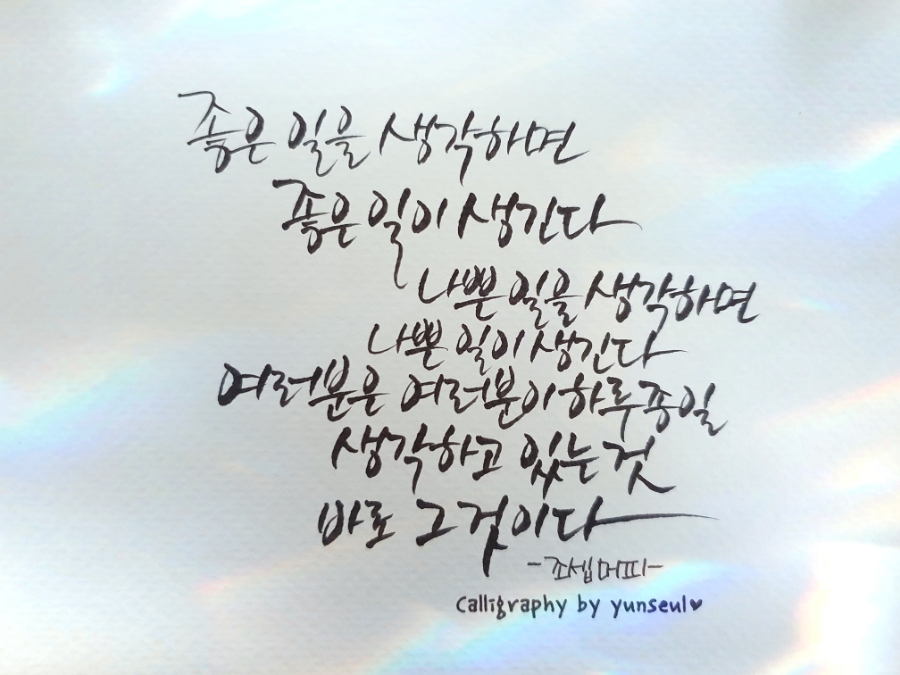 좋은 일을 생각하면
좋은 일이 생긴다
나쁜 일을 생각하면
나쁜 일이 생긴다
여러분은 여러분이 하루종일
생각하고 있는 것
바로 그것이다
-조셉머피-
Calligraphy by yunseul♥